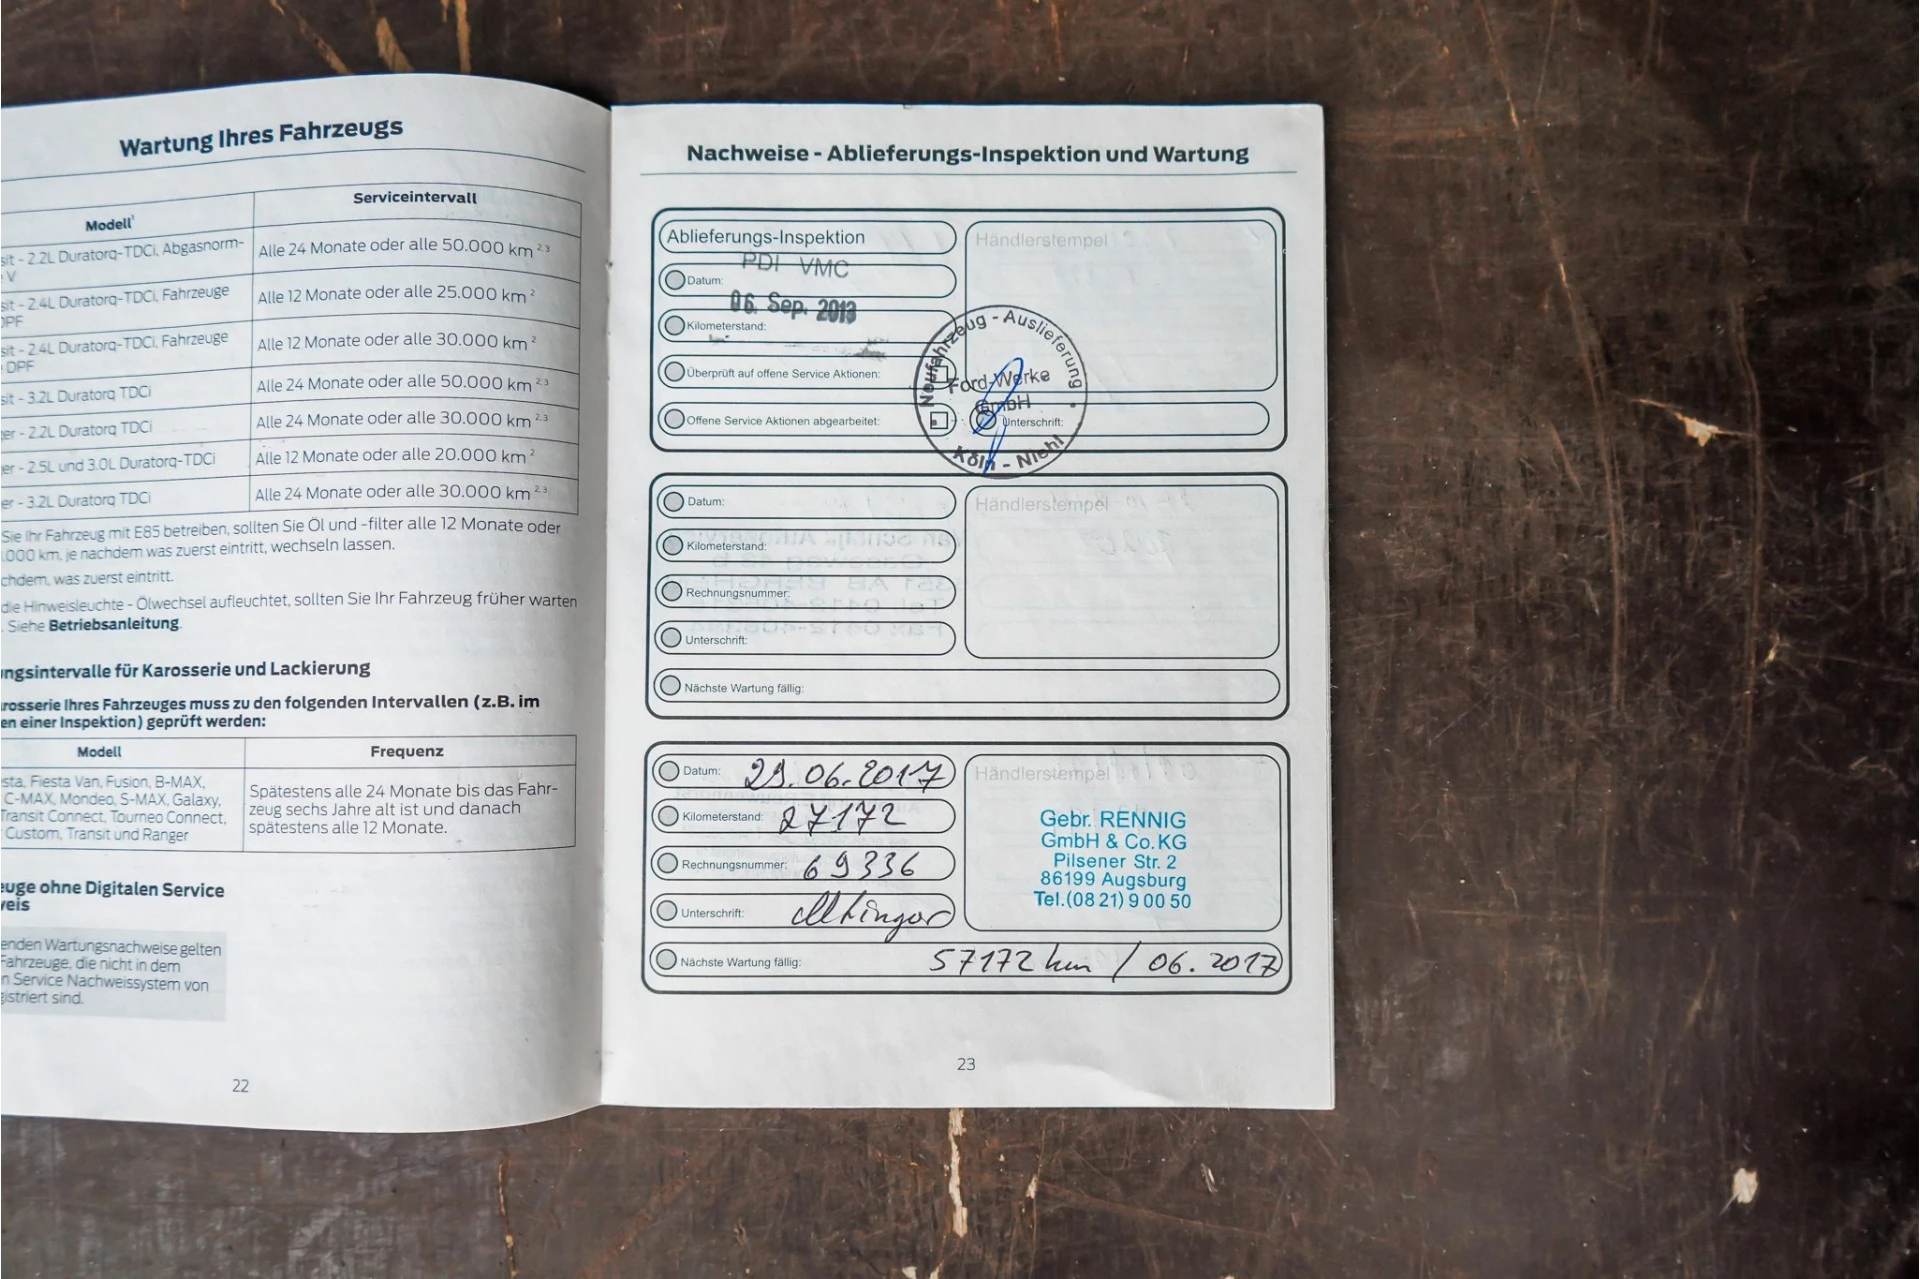 Wartung Ihres Fahrzeugs
Modell¹
Serviceintervall
sit - 2.2L Duratorq-TDCi, Abgasnorm-
V
Alle 24 Monate oder alle 50.000 km ²,³
sit - 2.4L Duratorq-TDCi, Fahrzeuge
DPF
Alle 12 Monate oder alle 25.000 km ²
sit - 2.4L Duratorq-TDCi, Fahrzeuge
DPF
Alle 12 Monate oder alle 30.000 km ²
sit - 3.2L Duratorq TDCi
Alle 24 Monate oder alle 50.000 km ²,³
er - 2.2L Duratorq TDCi
Alle 24 Monate oder alle 30.000 km ²,³
er - 2.5L und 3.0L Duratorq-TDCi
Alle 12 Monate oder alle 20.000 km ²
er - 3.2L Duratorq TDCi
Alle 24 Monate oder alle 30.000 km ²,³
Sie Ihr Fahrzeug mit E85 betreiben, sollten Sie Öl und -filter alle 12 Monate oder
.000 km, je nachdem was zuerst eintritt, wechseln lassen.
chdem, was zuerst eintritt.
die Hinweisleuchte - Ölwechsel aufleuchtet, sollten Sie Ihr Fahrzeug früher warten
Siehe Betriebsanleitung.
ngsintervalle für Karosserie und Lackierung
rosserie Ihres Fahrzeuges muss zu den folgenden Intervallen (z.B. im
en einer Inspektion) geprüft werden:
Modell
Frequenz
sta, Fiesta Van, Fusion, B-MAX,
C-MAX, Mondeo, S-MAX, Galaxy,
Transit Connect, Tourneo Connect,
Custom, Transit und Ranger
Spätestens alle 24 Monate bis das Fahr-
zeug sechs Jahre alt ist und danach
spätestens alle 12 Monate.
euge ohne Digitalen Service
veis
enden Wartungsnachweise gelten
Fahrzeuge, die nicht in dem
n Service Nachweissystem von
gistriert sind.
22
Nachweise - Ablieferungs-Inspektion und Wartung
Ablieferungs-Inspektion
Händlerstempel
PDI VMC
Datum:
06. Sep. 2013
Kilometerstand:
Überprüft auf offene Service Aktionen:
Offene Service Aktionen abgearbeitet:
Unterschrift:
Neufahrzeug - Auslieferung
Ford-Werke
GmbH
Köln - Niehl
Datum:
Händlerstempel
Kilometerstand:
Rechnungsnummer:
Unterschrift:
Nächste Wartung fällig:
Datum: 29.06.2017
Händlerstempel
Kilometerstand: 27172
Rechnungsnummer: 69336
Unterschrift:
Gebr. RENNIG
GmbH & Co. KG
Pilsener Str. 2
86199 Augsburg
Tel.(08 21) 9 00 50
Nächste Wartung fällig: 57172 km / 06.2017
23